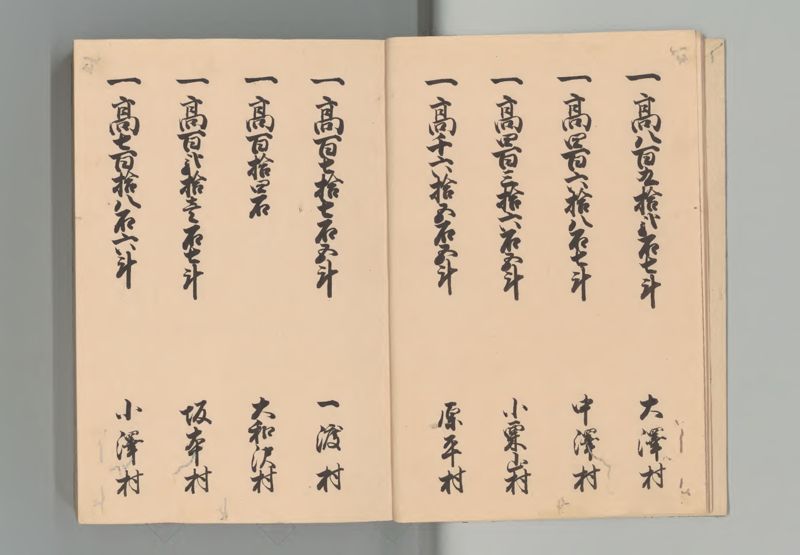 一高八百五拾弐石七斗 大澤村
一高四百六拾八石七斗 中澤村
一高四百三拾六石五斗 小栗山村
一高千六拾五石五斗 原平村
一高百七拾七石五斗 一渡村
一高百拾四石 大和沢村
一高百弐拾壱石七斗 坂本村
一高七百拾八石六斗 小澤村